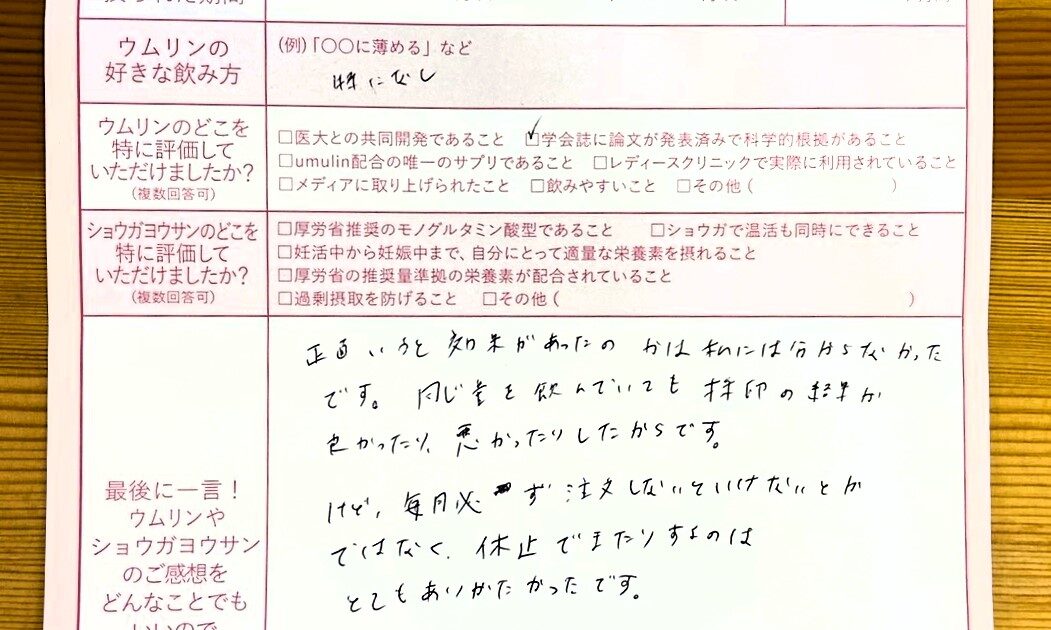 ウムリンの
好きな飲み方
(例)「〇〇に薄める」など
特になし
ウムリンのどこを
特に評価して
いただけましたか?
(複数回答可)
□医大との共同開発であること ☑学会誌に論文が発表済みで科学的根拠があること
□umulin配合の唯一のサプリであること □レディースクリニックで実際に利用されていること
□メディアに取り上げられたこと □飲みやすいこと □その他( )
ショウガヨウサンのどこを
特に評価して
いただけましたか?
(複数回答可)
□厚労省推奨のモノグルタミン酸型であること □ショウガで温活も同時にできること
□妊活中から妊娠中まで、自分にとって適量な栄養素を摂れること
□厚労省の推奨量準拠の栄養素が配合されていること
□過剰摂取を防げること □その他( )
最後に一言!
ウムリンや
ショウガヨウサン
のご感想を
どんなことでも
いいので
正直いうと効果があったのかは私には分からなかった
です。同じ量を飲んでいても採卵の結果が
良かったり、悪かったりしたからです。
けど、毎月必ず注文しないといけないとか
ではなく、休止できたりするのは
とてもありがたかったです。